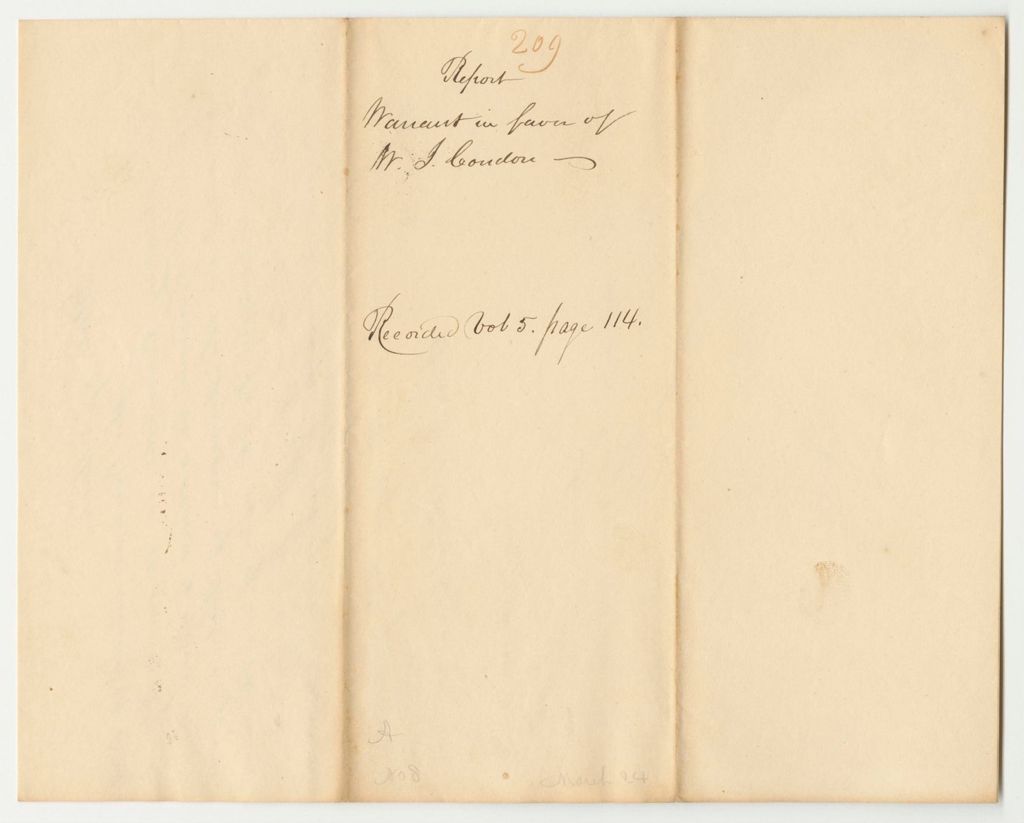 209
Report
Warrant in favor of
W. J. Condon
Recorded Vol 5. page 114.
A
March 24